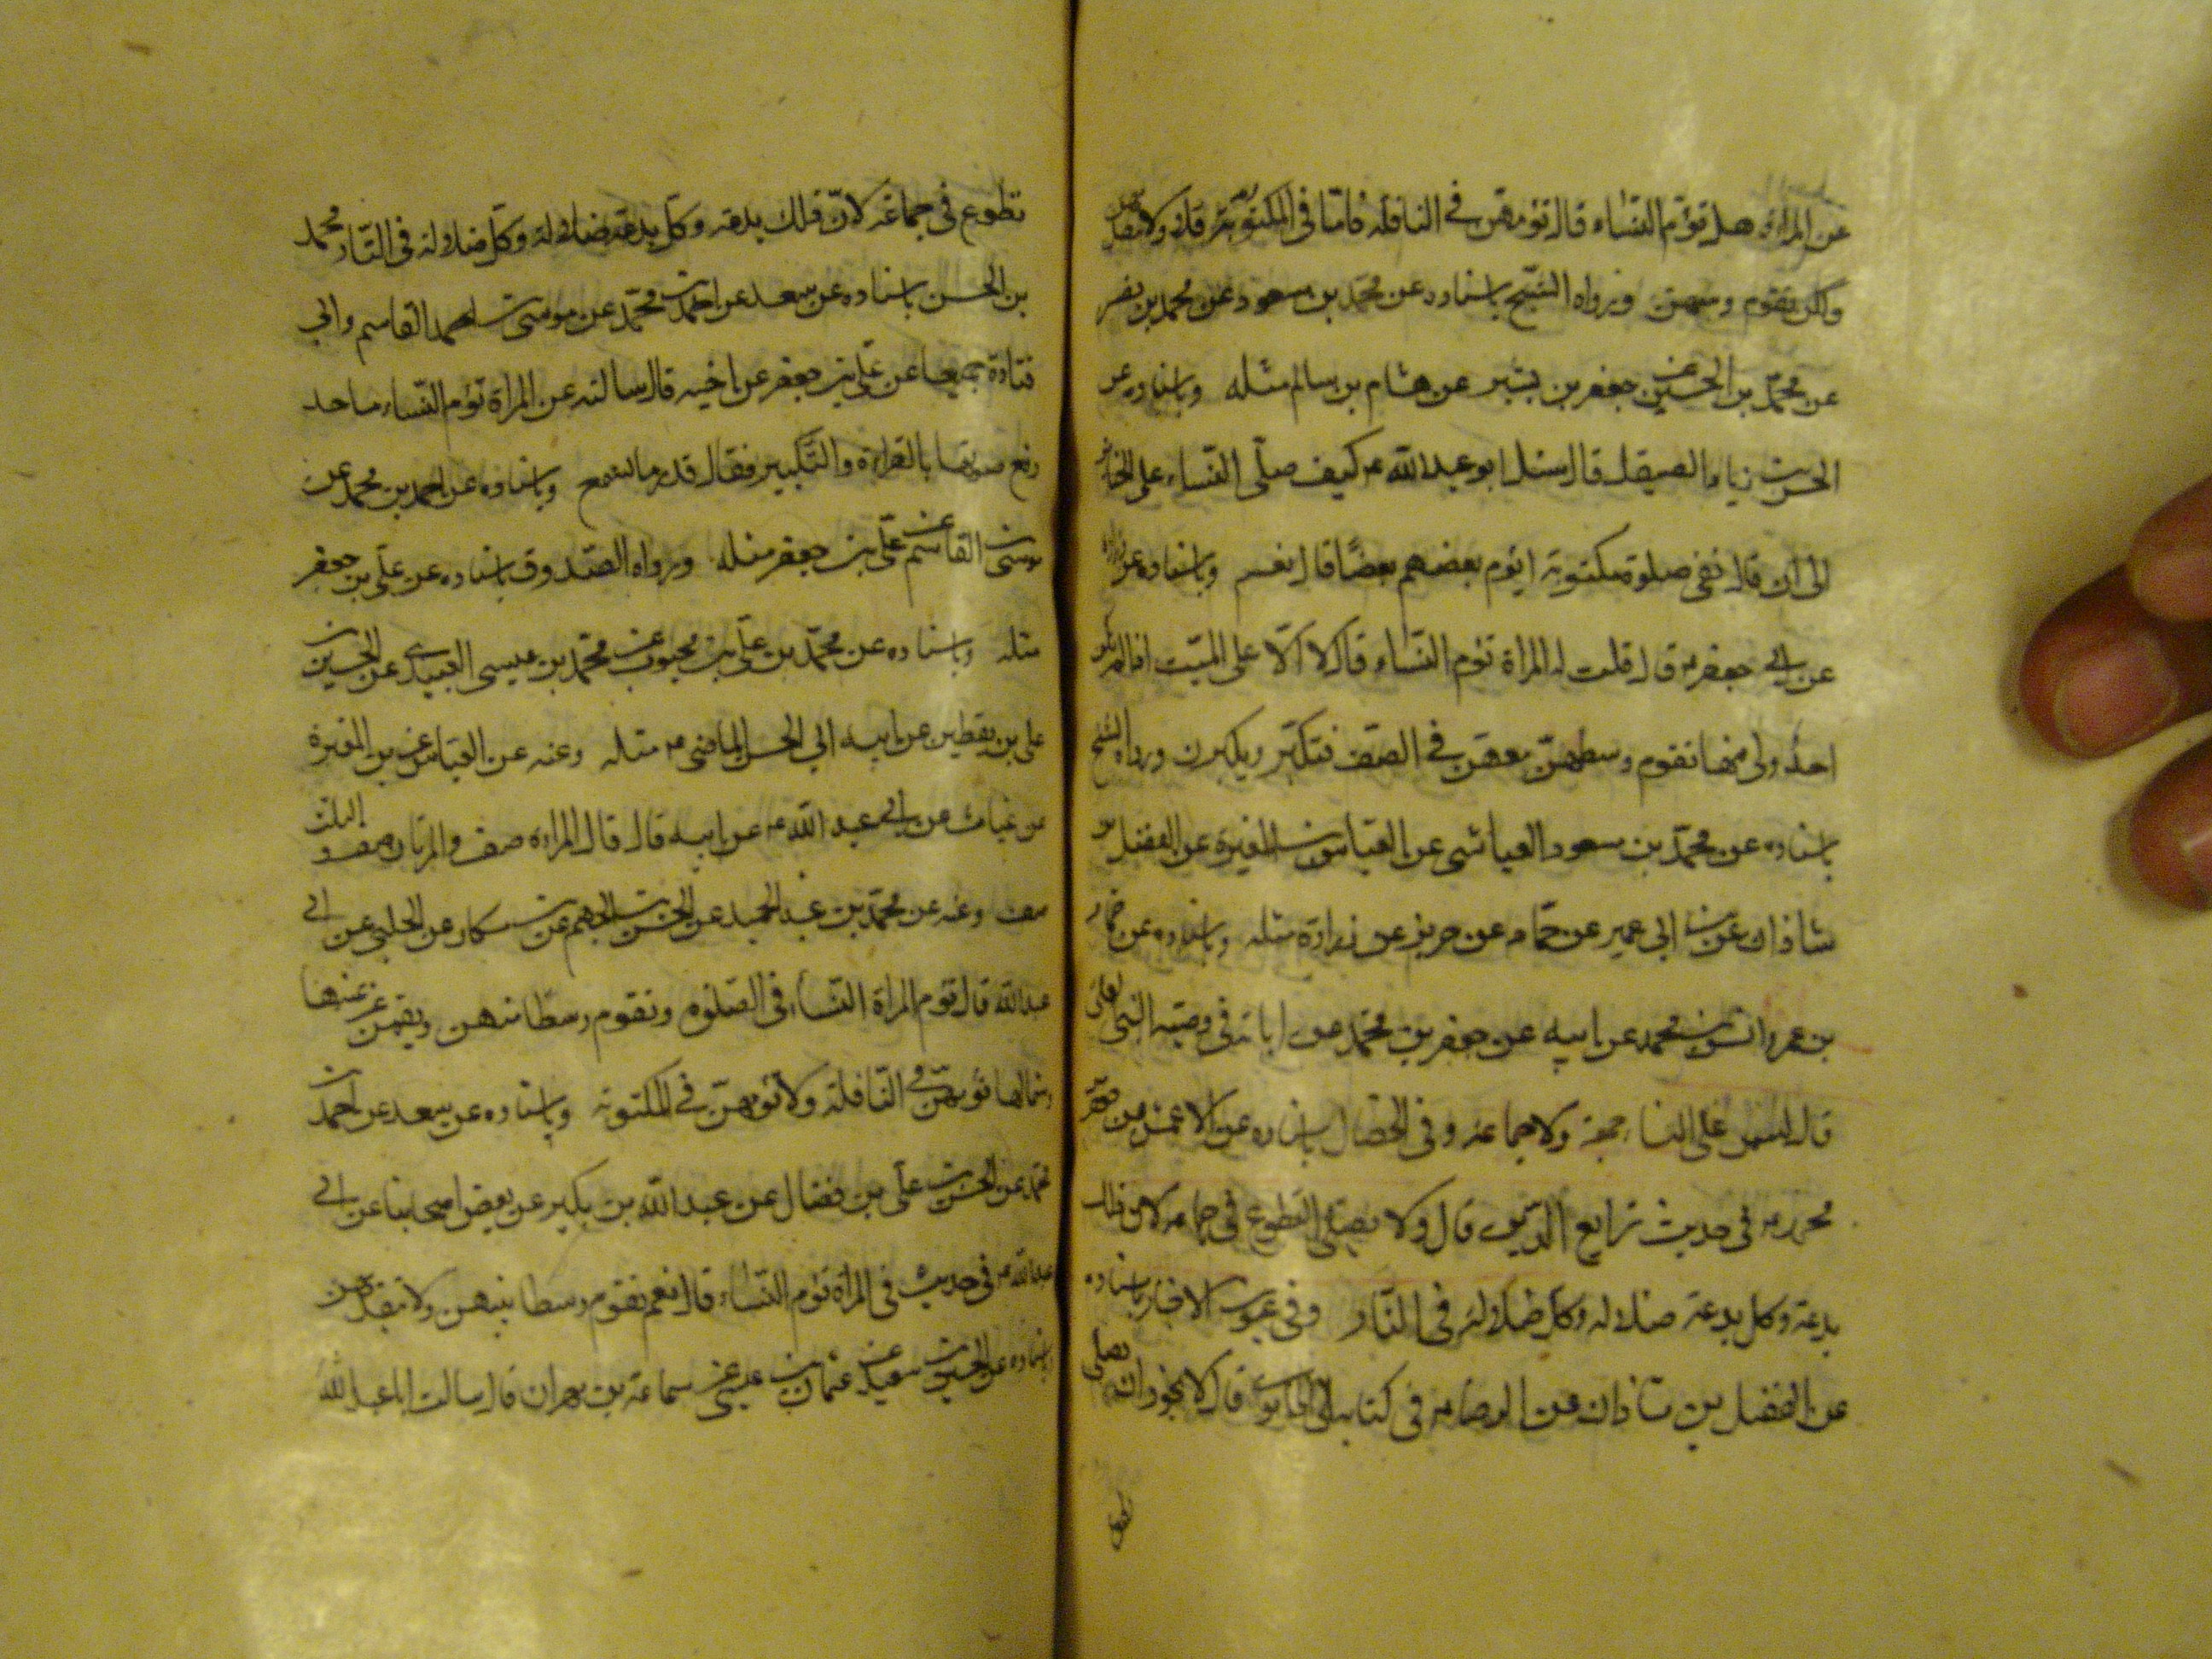 عن المراة هل تؤم النساء قال تؤمهن في النافلة فامّا في المكتوبة فلا ولا تتقدمهن
ولكن تقوم وسطهن ورواه الشيخ باسناده عن محمد بن مسعود عن محمد بن نصر
عن محمّد بن الحسين عن جعفر بن بشير عن هشام بن سالم مثله وباسناده عن
الحسن بن زياد الصيقل قال سئل ابو عبد الله ع كيف تصلّى النساء على الجنائز
الى ان قال ففي صلوة مكتوبة ايؤم بعضهم بعضًا قال نعم وباسناده عن زرارة
عن ابي جعفر ع قال قلت له المراة تؤم النساء قال لا الّا على الميّت اذا لم يكن
احد اولى منها تقوم وسطهنّ معهن في الصف فتكبّر ويكبرن ورواه الشيخ
باسناده عن محمّد بن مسعود العياشي عن العباس بن المغيرة عن الفضل بن
شاذان عن ابن ابي عمير عن حمّاد عن حريز عن زرارة مثله وباسناده عن حماد
بن عمرو انس بن محمد عن ابيه عن جعفر بن محمّد عن ابائه في وصيّة النبي لعلي
قال ليس على النساء جمعة ولا جماعة وفي الخصال باسناده عن الاعمش عن جعفر
محمد ع في حديث شرايع الدين قال ولا يصلى التطوع في جماعة لان ذلك
بدعة وكل بدعة ضلالة وكل ضلالة في النّار وفي عيون الاخبار باسناده
عن الفضل بن شاذان عن الرضا ع في كتابه الى المامون قال لا يجوز ان يصلى
تطوع في جماعة لانّ ذلك بدعة وكلّ بدعة ضلالة وكلّ ضلالة في النّار محمد
بن الحسن باسناده عن سعد عن احمد بن محمّد عن موسى بن القاسم وابي
قتادة جميعا عن علّي بن جعفر عن اخيه قال سالته عن المراة تؤم النساء ما حد
رفع صوتها بالقراءة والتّكبير فقال قدر ما تسمع وباسناده عن احمد بن محمد عن
موسى بن القاسم عن علّي بن جعفر مثله ورواه الصّدوق باسناده عن علّي بن جعفر
مثله وباسناده عن محمّد بن علّي بن محبوب عن محمّد بن عيسى العبيدي عن الحسين بن
علي بن يقطين عن ابيه ابي الحسن الماضي ع مثله وعنه عن العبّاس عن بن المغيرة
عن غياث عن ابي عبد الله ع عن ابيه قال قال المراة صف والمراتان صف والثلث
صف وعنه عن محمّد بن عبد الحميد عن الحسن بن الجهم عن بن مسكان عن الحلبي عن ابي
عبد الله قال تؤم المراة النساء في الصّلوة وتقوم وسطا منهن ويقمن عن يمينها
وشمالها تؤمهنّ في النّافلة ولا تؤمهنّ في المكتوبة وباسناده عن سعد عن احمد بن
محمّد عن الحسن بن علّي بن فضال عن عبد الله بن بكير عن بعض اصحابنا عن ابي
عبد الله ع في حديث في المراة تؤم النّساء قال نعم تقوم وسطا بينهن ولا تتقدمهن
وباسناده عن الحسين بن سعيد عن عثمان بن عيسى عن سماعة بن مهران قال سالت ابا عبد الله